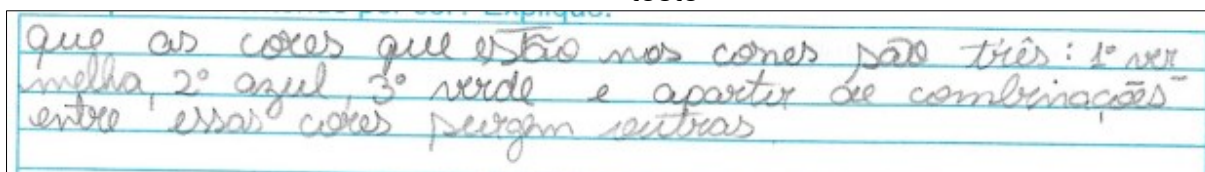 que as cores que estão nos cones são três: 1º ver
melha, 2º azul, 3º verde e apartir de combinações
entre essas cores surgem outras